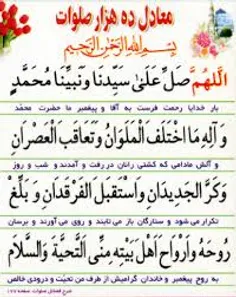 معادل ده هزار صلوات
بِسْمِ اللهِ الرَّحْمٰنِ الرَّحِيمِ
اَللّٰهُمَّ صَلِّ عَلىٰ سَيِّدِنا وَنَبِيِّنا مُحَمَّدٍ
بار خدایا رحمت فرست به آقا و پیغمبر ما حضرت محمّد
وَ آلِهِ مَا اخْتَلَفَ الْمَلَوَانِ وَتَعَاقَبَ الْعَصْرَانِ
و آلش مادامی که کشتی رانان در رفت و آمدند و شب و روز
وَكَرَّ الْجَدِيدَانِ وَاسْتَقْبَلَ الْفَرْقَدَانِ وَ بَلِّغْ
تکرار می شود و ستارگان باز می تابند و روی می آورند و برسان
رُوحَهُ وَاَرْوَاحَ اَهْلِ بَيْتِهِ مِنِّى التَّحِيَّةَ وَالسَّلَامَ
به روح پیغمبر و خاندان گرامیش از طرف من تحیّت و درودی خالص
شرح فضائل صلوات صفحه